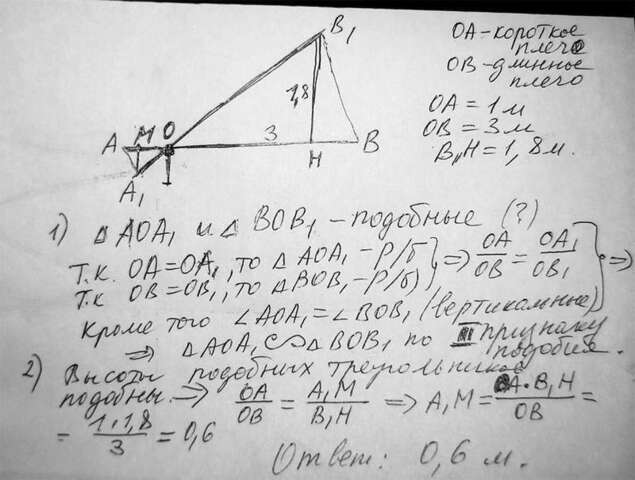 B₁
OA - короткое
плечо
OB - длинное
плечо
1,8
OA = 1 м
A M O 3
OB = 3 м
H B
B₁H = 1,8 м.
A₁
1) △ AOA₁ и △ BOB₁ - подобные (?)
Т.к. OA = OA₁, то △ AOA₁ - р/б } ⇒ OA/OB = OA₁/OB₁ } ⇒
Т.к OB = OB₁, то △ BOB₁ - р/б)
Кроме того ∠AOA₁ = ∠BOB₁ (вертикальные)
⇒ △ AOA₁ ∽ △ BOB₁ по III признаку
подобия.
2) Высоты подобных треугольников
подобны. ⇒ OA/OB = A₁M/B₁H ⇒ A₁M = OA · B₁H/OB =
= 1·1,8/3 = 0,6
Ответ: 0,6 м.